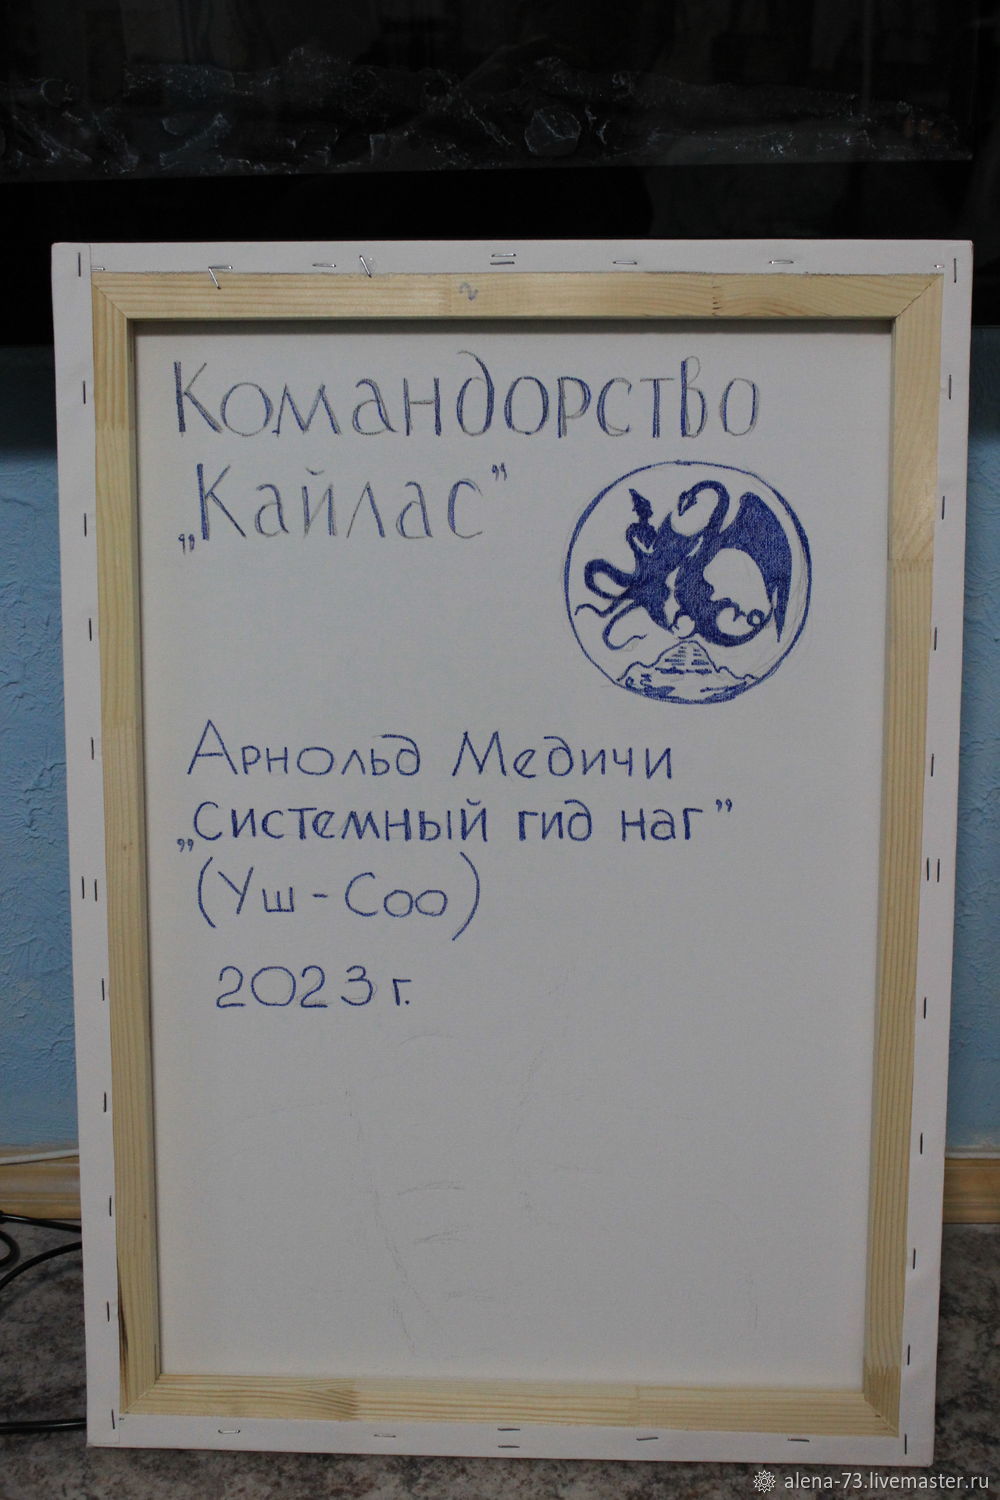 2
Командорство
„Кайлас”
Арнольд Медичи
„Системный гид наг”
(Уш-Соо)
2023 г.
alena-73.livemaster.ru